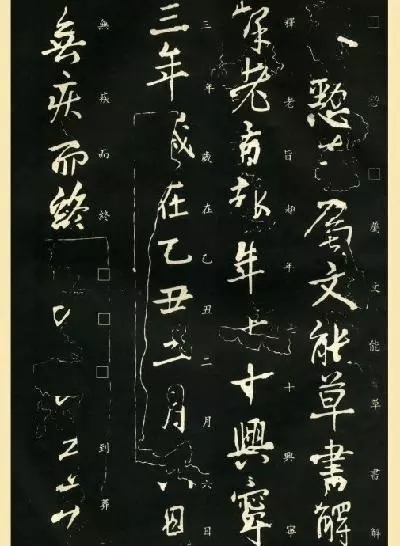 □愍□屬文能草書解
愍屬文能草書解
釋老旨趣年七十興寧
釋老旨趣年七十興寧
三年歲在乙丑二月六日
三年歲在乙丑二月六日
無疾而終□□□到葬
無疾而終